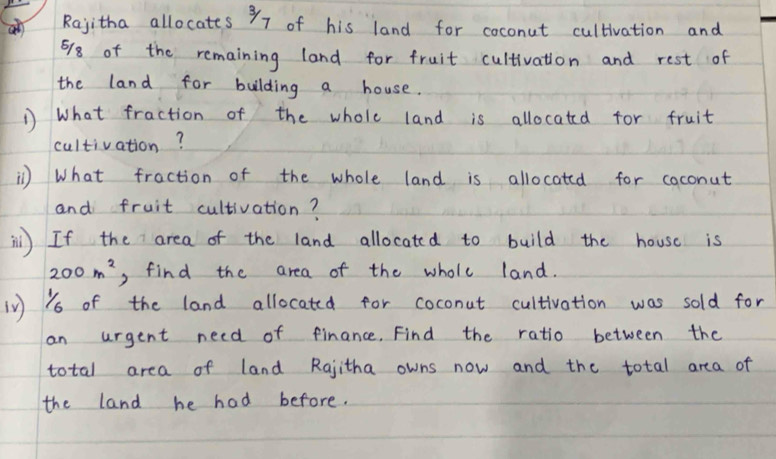 Rajitha allocates 3/7 of his land for coconut cultivation and
5/8 of the remaining land for fruit cultivation and rest of
the land for building a house.
i) What fraction of the whole land is allocated for fruit
cultivation?
ii) What fraction of the whole land is allocated for coconut
and fruit cultivation?
iii) If the area of the land allocated to build the house is
200 m², find the area of the whole land.
iv) 1/6 of the land allocated for coconut cultivation was sold for
an urgent need of finance. Find the ratio between the
total area of land Rajitha owns now and the total area of
the land he had before.